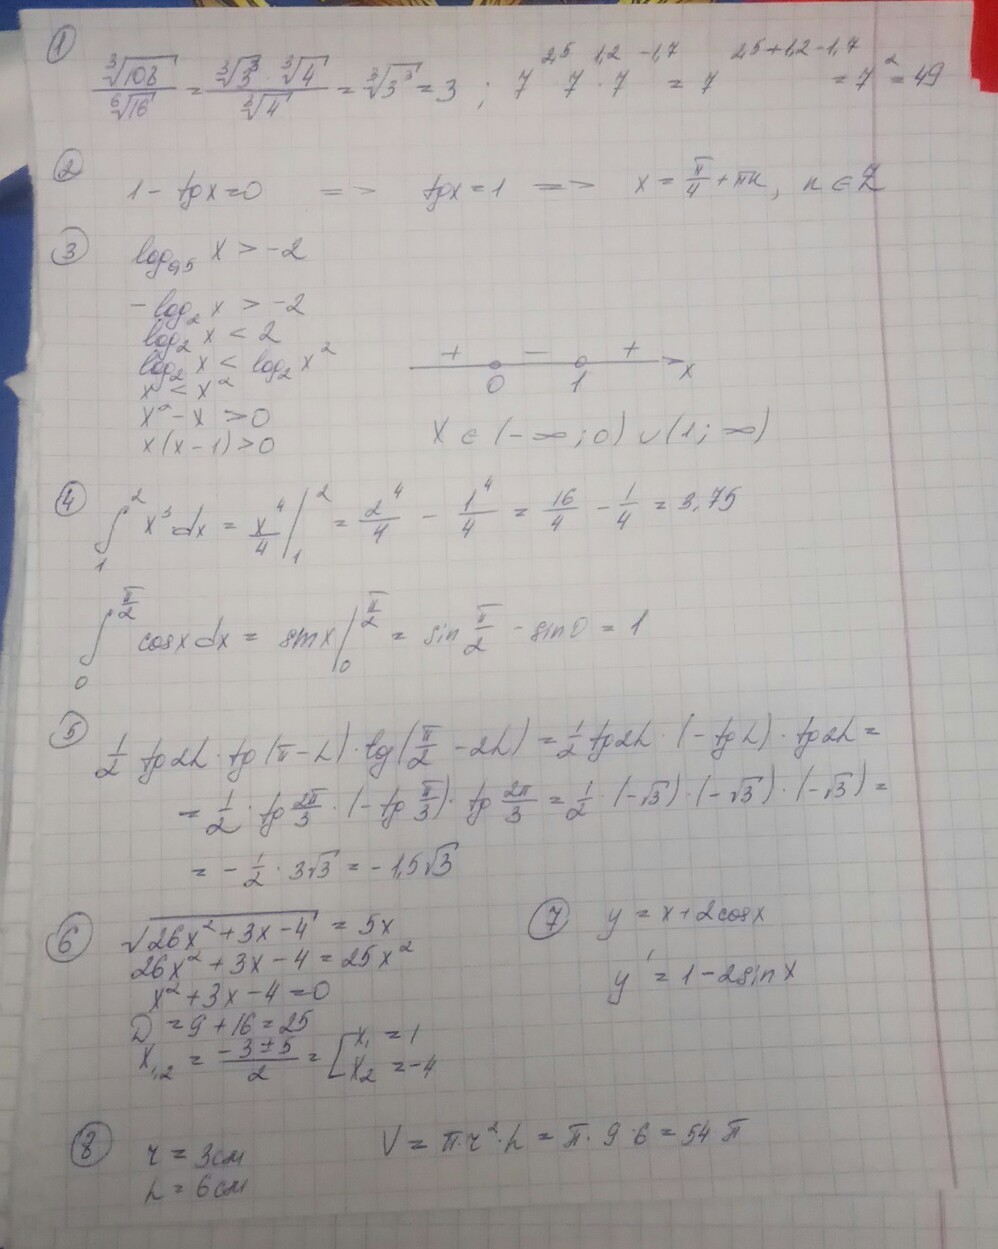 ① ∛108 / ⁶√16 = ∛3³ · ∛4 / ∛4 = ∛3³ = 3 ; 7^2,5 7^1,2 · 7^-1,7 = 7^(2,5+1,2-1,7) = 7² = 49
② 1 - tgx = 0 => tgx = 1 => x = π/4 + πn, n ∈ Z
③ log₀,₅ x > -2
-log₂ x > -2
log₂ x < 2
log₂ x < log₂ x²
x < x²
x² - x > 0
x(x-1) > 0
+ - +
0 1 x
x ∈ (-∞; 0) ∪ (1; ∞)
④ ∫₁² x³dx = x⁴/4 |₁² = 2⁴/4 - 1⁴/4 = 16/4 - 1/4 = 3,75
∫₀^(π/2) cosxdx = sinx |₀^(π/2) = sin π/2 - sin0 = 1
⑤ 1/2 tg2L · tg(π-L) · tg(π/2 - 2L) = 1/2 tg2L · (-tgL) · tg2L =
= 1/2 · tg 2π/3 · (-tg π/3) · tg 2π/3 = 1/2 · (-√3) · (-√3) · (-√3) =
= -1/2 · 3√3 = -1,5√3
⑥ √(26x²+3x-4) = 5x
26x² + 3x - 4 = 25x²
x² + 3x - 4 = 0
D = 9 + 16 = 25
x₁,₂ = (-3±5)/2 = [x₁ = 1
x₂ = -4
⑦ y = x + 2cosx
y' = 1 - 2sinx
⑧ r = 3см
h = 6см
V = π·r²·h = π·9·6 = 54π